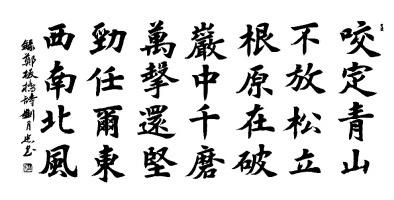 咬定青山
不放松立
根原在破
巖中千磨
萬擊還堅
勁任爾東
西南北風
錄鄭板橋詩劉月